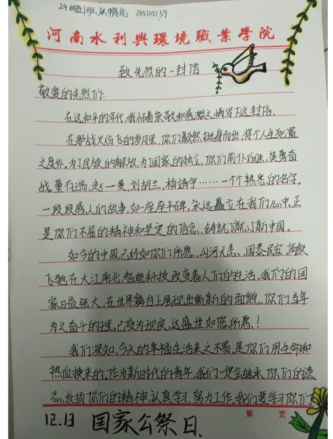 河南水利與環境職業學院
致先烈的一封信
敬爱的先烈们:
在这和平的年代,我怀着崇敬和感激之情写下这封信。
在那战火纷飞的岁月里,你们毅然挺身而出,将个人生死置
之度外,为了民族的解放,为了国家的独立,你们前仆后继,英勇奋
战,董存瑞、赵一曼、刘胡兰、杨靖宇……一个个熟悉的名字,
一段段感人的故事,如一座座丰碑,永远矗立在我们心中,正
是你们不屈的精神和坚定的信念,铸就了新中国。
如今的中国,已经如你们所愿,山河无恙,国泰民安,高铁
飞驰在大江南北,智能科技改变着人们的生活,我们的国
家日益强大,在世界舞台上展现出崭新的面貌,你们当年
为之奋斗的理想,已变为现实,这盛世如您所愿!
我们深知,今天的幸福生活来之不易,是你们用生命和
热血换来的,作为新时代的青年,我们一定会继承你们的遗
志,发扬你们的精神,认真学习,努力工作,我们要学习你们
第 页
12.13 国家公祭日.